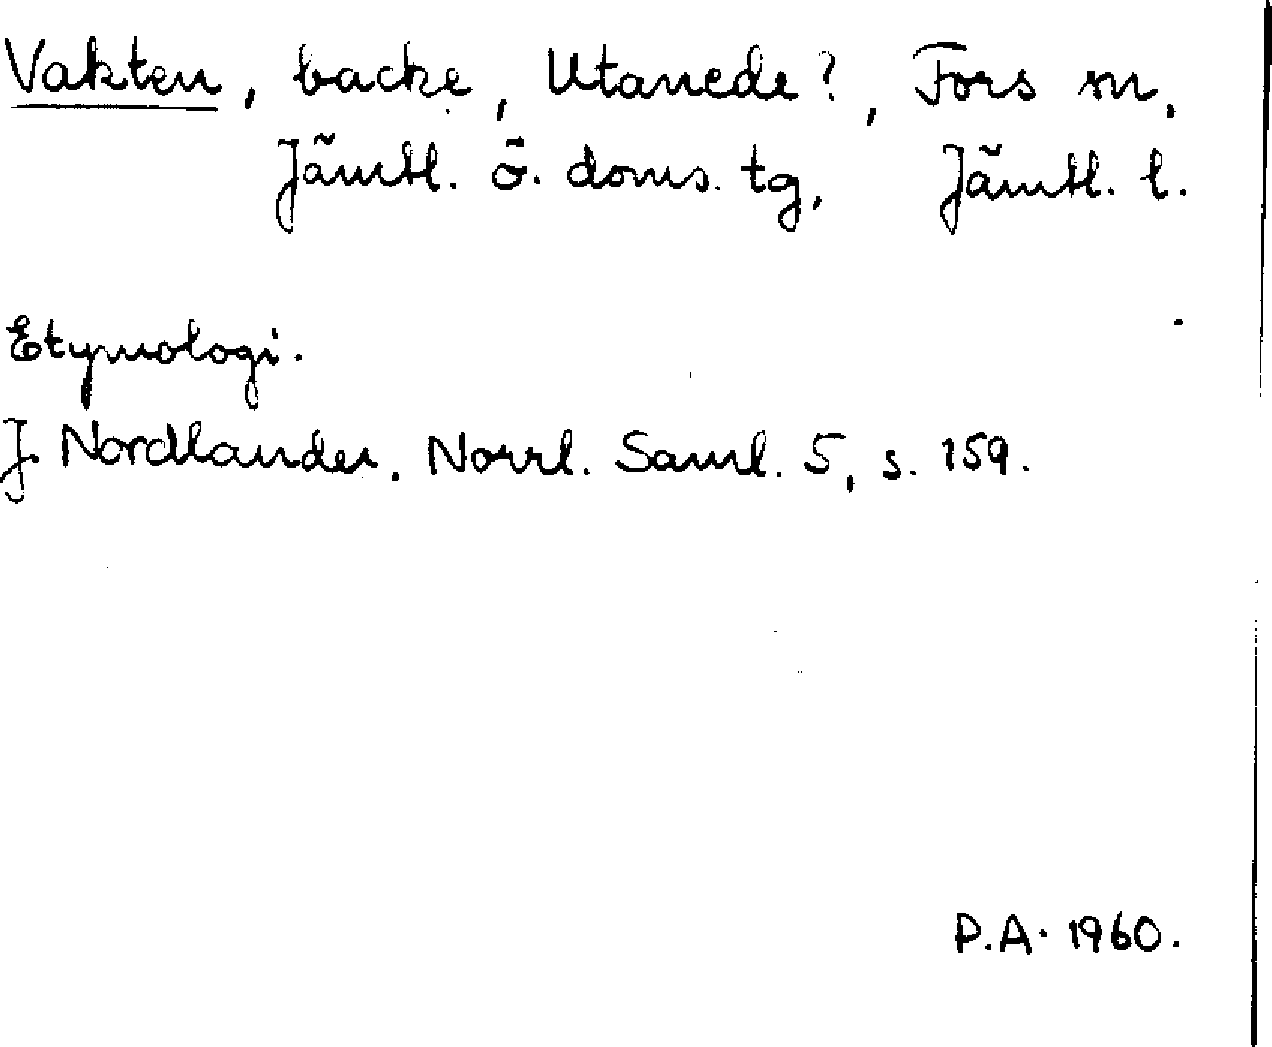 Vakten, backe, Utanede?, Fors sn,
Jämtl. ö. doms. tg, Jämtl. l.
Etymologi.
J. Nordlander. Norrl. Saml. 5, s. 159.
P.A. 1960.